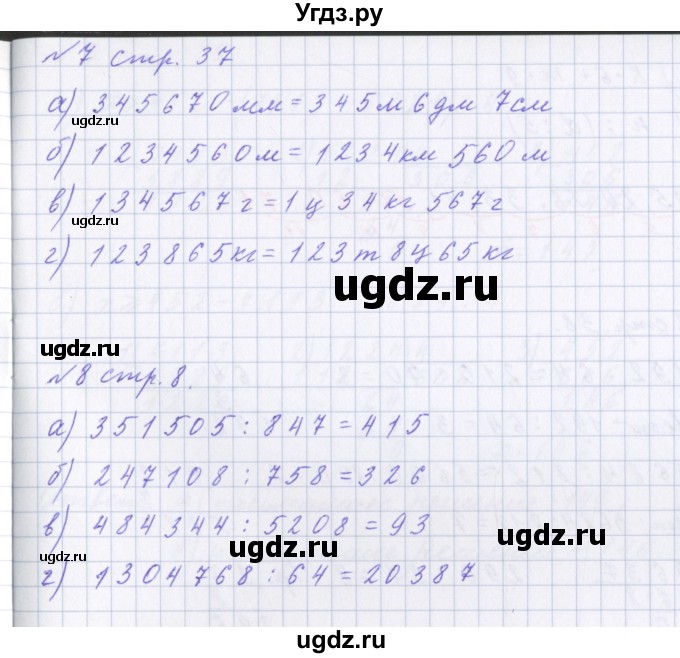 Угдз.ру
№7 стр. 37
а) 345670мм = 345м 6дм 7см
ugdz.ru
б) 1234560м = 1234км 560м
в) 134567г = 1ц 34кг 567г
ugdz.ru
г) 123865кг = 123т 8ц 65кг
ugdz.ru
ugdz.ru
№8 стр. 8.
а) 351505 : 847 = 415
ugdz.ru
б) 247108 : 758 = 326
в) 484344 : 5208 = 93
ugdz.ru ugdz.ru
ugdz.ru
г) 1304768 : 64 = 20387
ugdz.ru